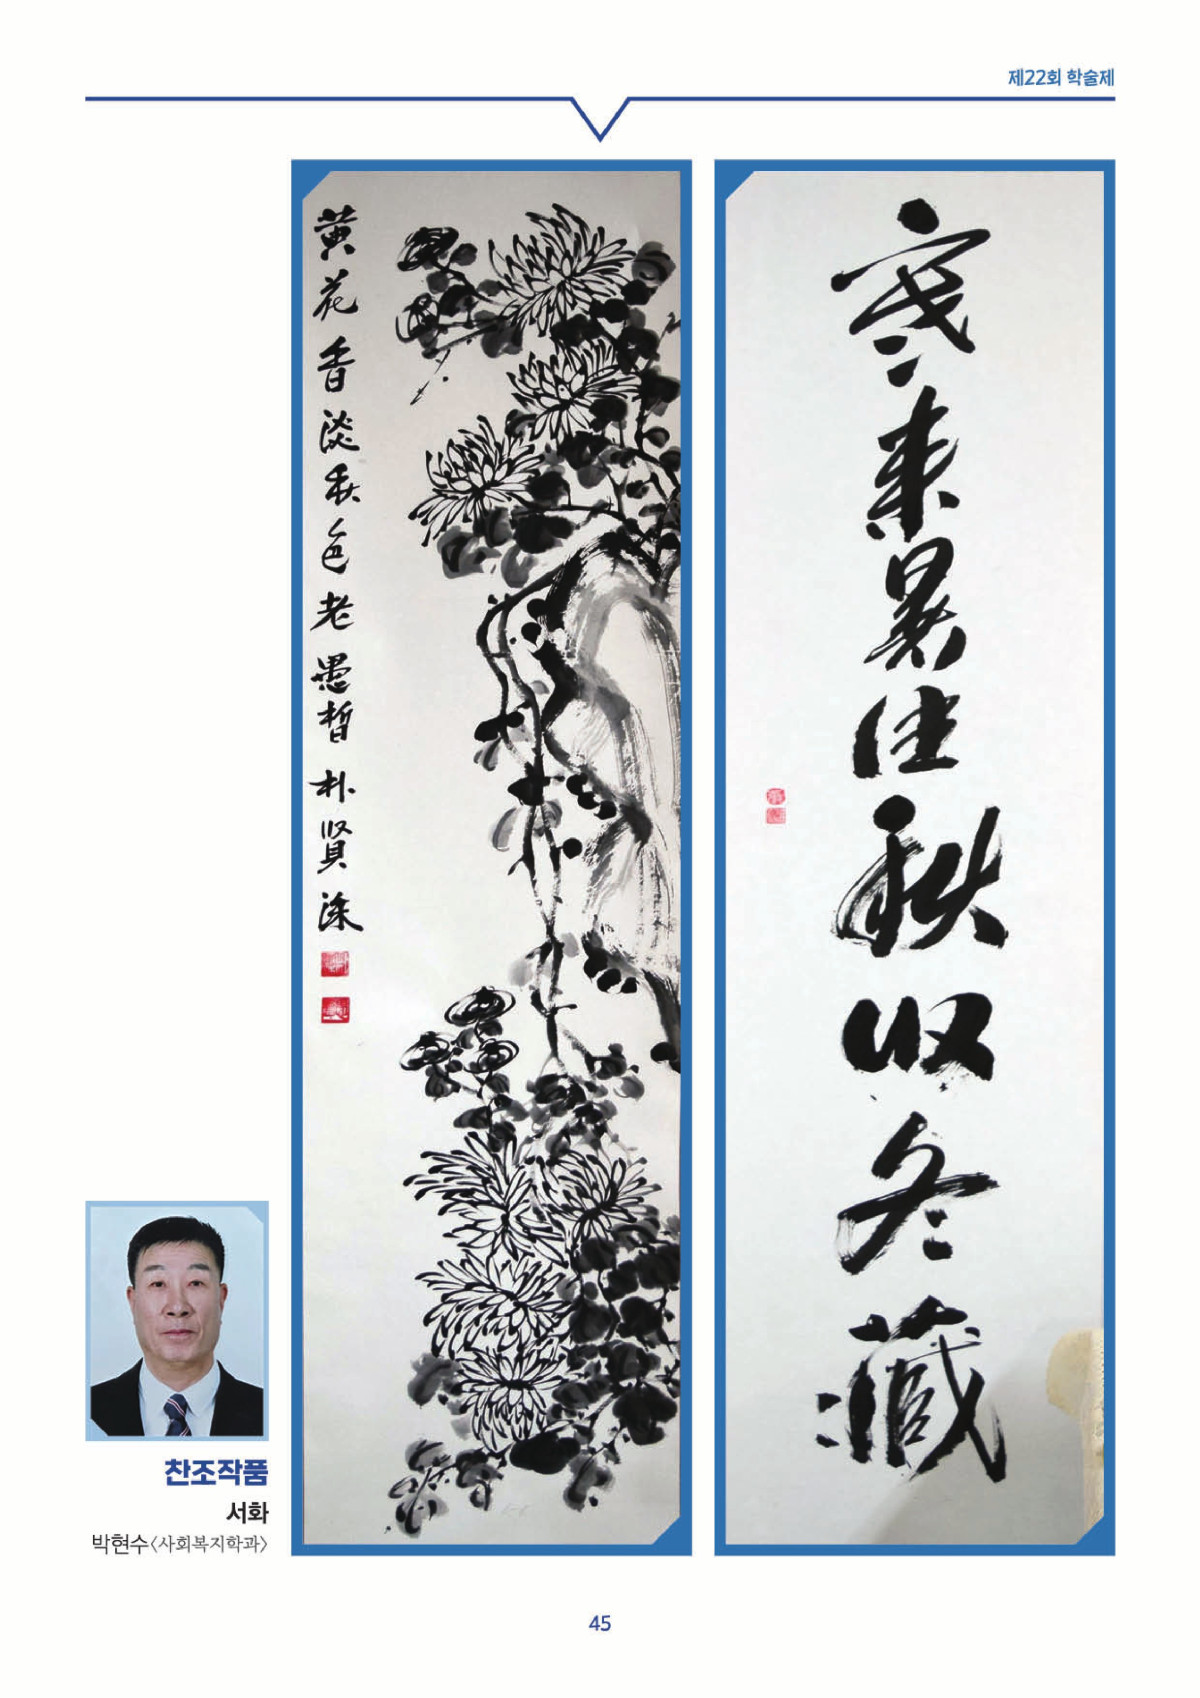 제22회 학술제
黄花香淡秋色老愚晳 朴賢洙
寒来暑往秋收冬藏
찬조작품
서화
박현수〈사회복지학과〉
45